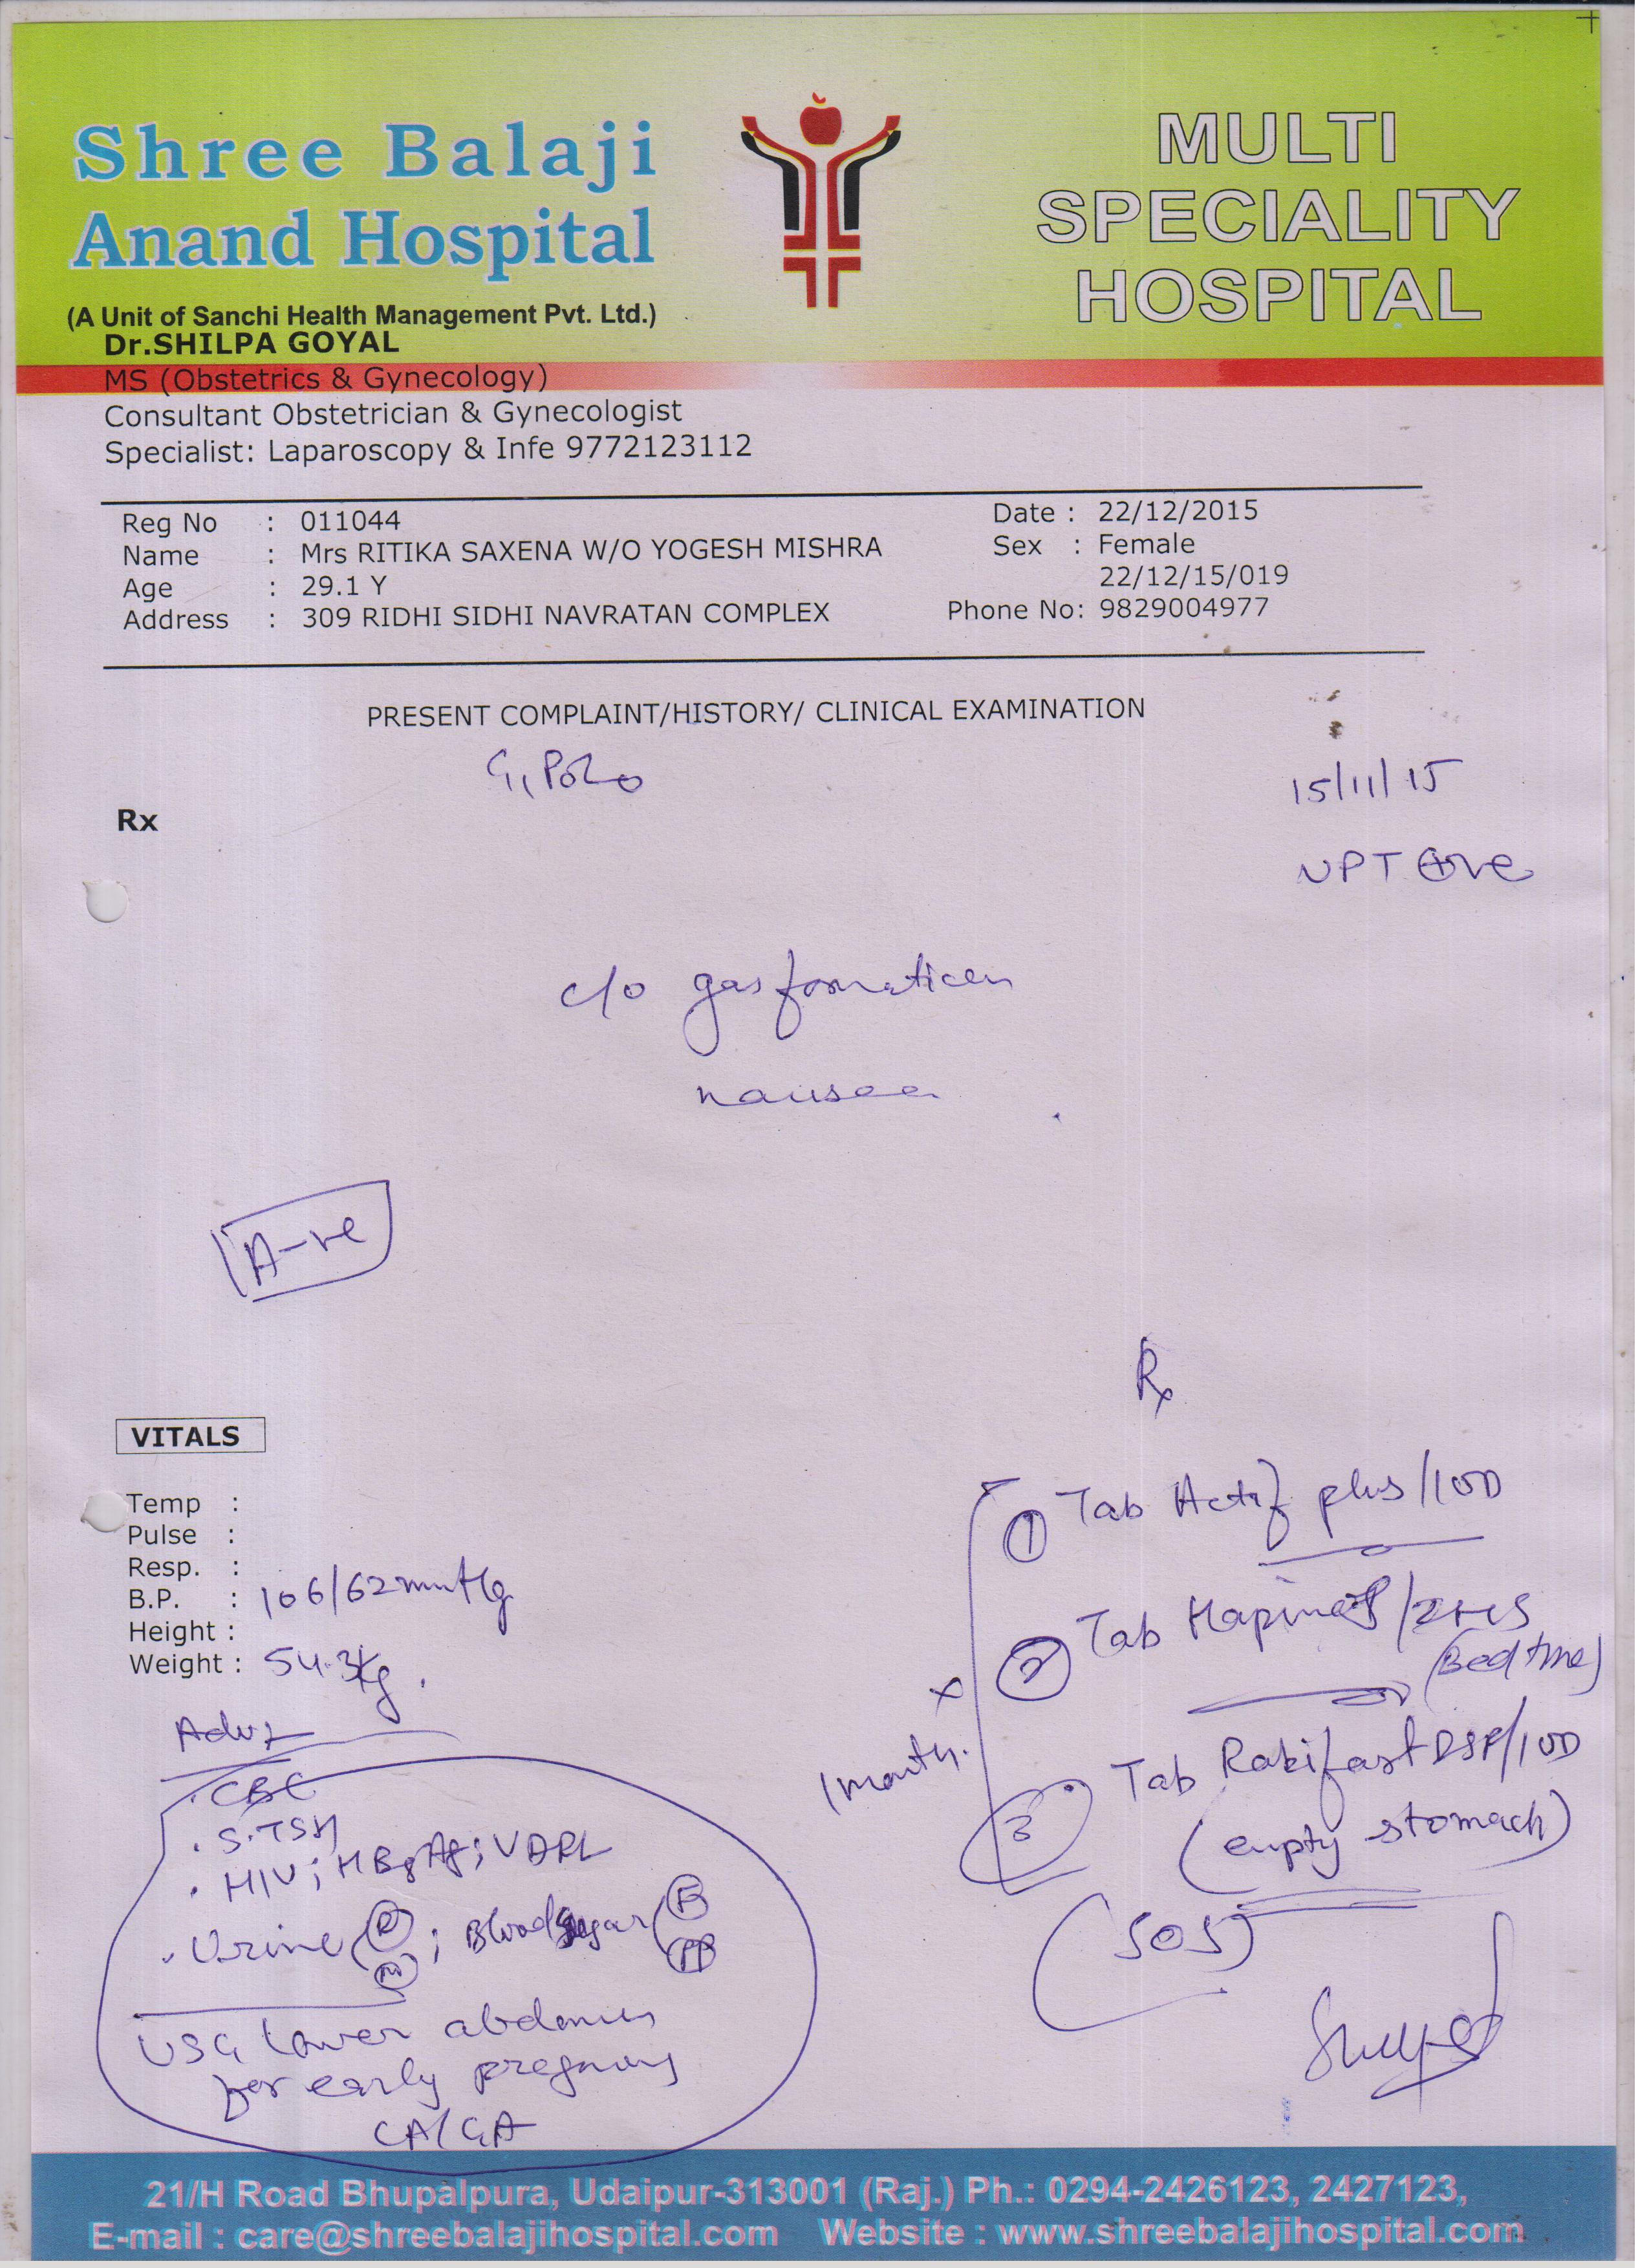 Shree Balaji
Anand Hospital
(A Unit of Sanchi Health Management Pvt. Ltd.)
MULTI
SPECIALITY
HOSPITAL
Dr.SHILPA GOYAL
MS (Obstetrics & Gynecology)
Consultant Obstetrician & Gynecologist
Specialist: Laparoscopy & Infe 9772123112
Reg No : 011044
Date : 22/12/2015
Name : Mrs RITIKA SAXENA W/O YOGESH MISHRA
Sex : Female
Age : 29.1 Y
22/12/15/019
Address : 309 RIDHI SIDHI NAVRATAN COMPLEX
Phone No: 9829004977
PRESENT COMPLAINT/HISTORY/ CLINICAL EXAMINATION
G1P0L0
15/11/15
Rx
UPT ⊕ve
c/o gas formation
nausea
A-ve
Rx
VITALS
Temp :
Pulse :
Resp. :
B.P. : 106/62mmHg
Height :
Weight : 54.3kg.
① Tab Actif plus/1OD
② Tab /2HS
(Bedtime)
③ Tab Rabifast DSR/1OD
(empty stomach)
(SOS)
x 1month.
Adv
. CBC
. S.TSH
. HIV; HBsAg; VDRL
. Urine R M; Blood Sugar F PP
USG Lower abdomen
for early pregnancy
CA/GA
21/H Road Bhupalpura, Udaipur-313001 (Raj.) Ph.: 0294-2426123, 2427123,
E-mail : care@shreebalajihospital.com Website : www.shreebalajihospital.com